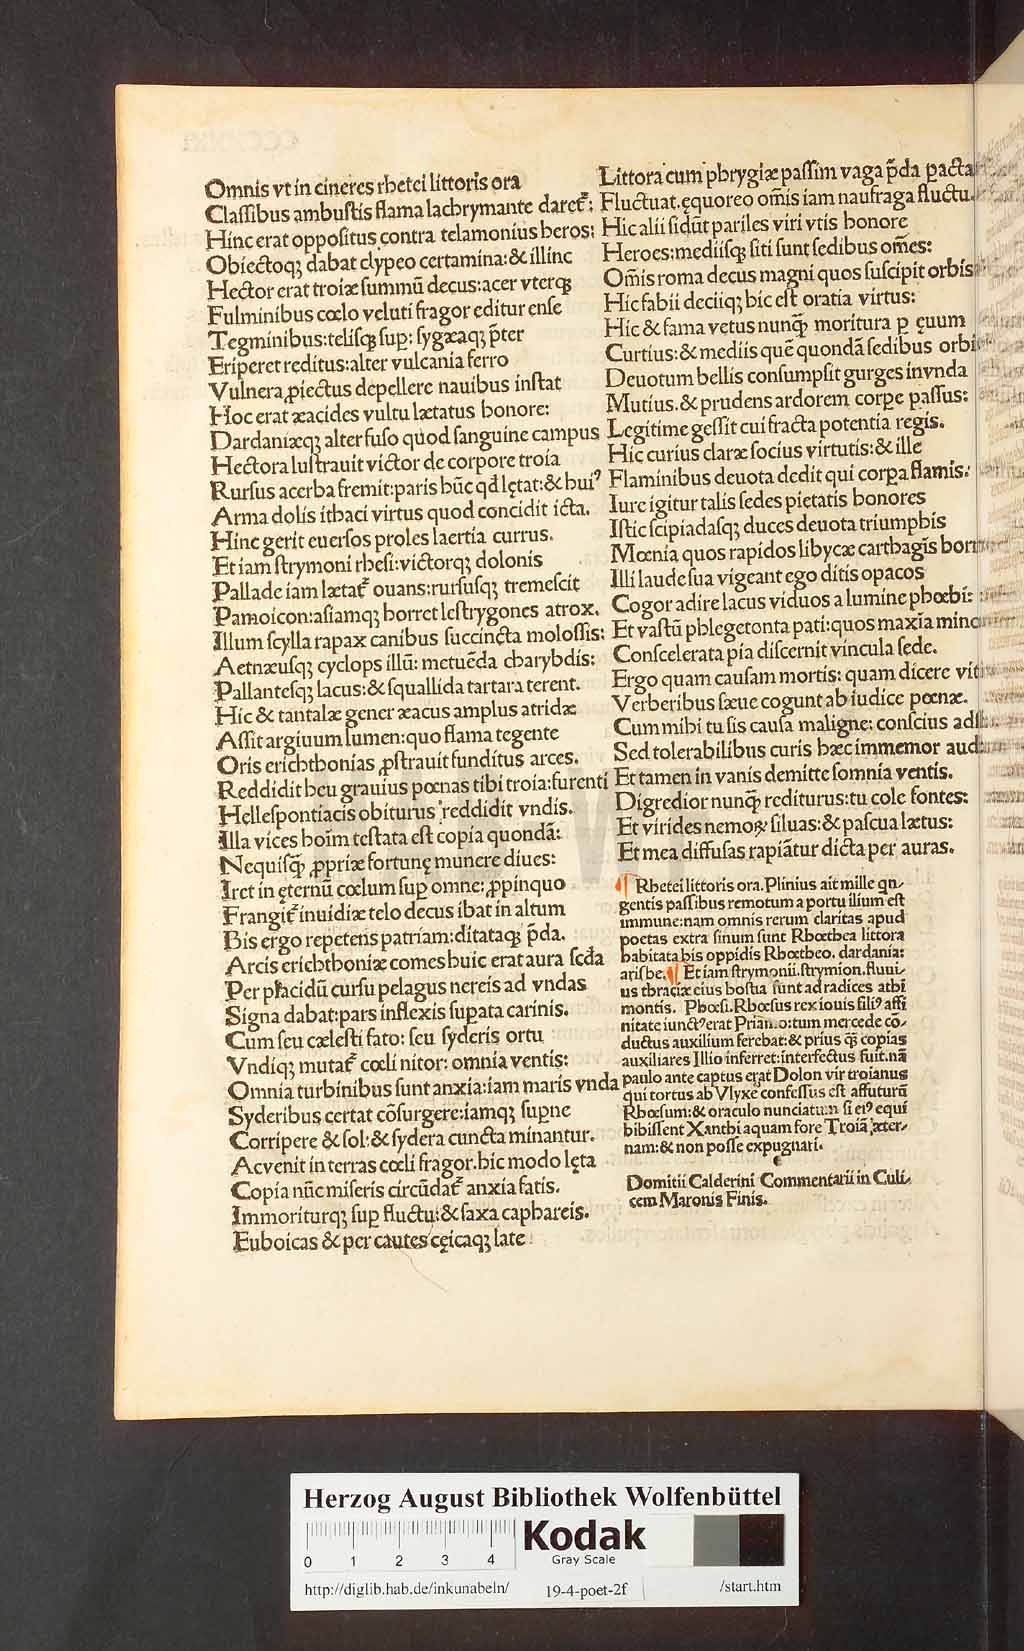 Omnis vt in cineres rhetei littoris ora
Classibus ambustis flama lachrymante daret᷑:
Hinc erat oppositus contra telamonius heros:
Obiectoq; dabat clypeo certamina:& illinc
Hector erat troiæ summū decus:acer vterq;
Fulminibus cœlo veluti fragor editur ense
Tegminibus:telisq; sup: sygæaq; p̄ter
Eriperet reditus:alter vulcania ferro
Vulnera ꝓiectus depellere nauibus instat
Hoc erat æacides vultu lætatus honore:
Dardaniæq; alter fuso quod sanguine campus
Hectora lustrauit victor de corpore troia
Rursus acerba fremit:paris hūc qd lętat:& huiꝰ
Arma dolis ithaci virtus quod concidit icta.
Hinc gerit euersos proles laertia currus.
Et iam strymoni rhesi:victorq; dolonis
Pallade iam lætat᷑ ouans:rursusq; tremescit
Pamoicon:asiamq; horret lestrygones atrox.
Illum scylla rapax canibus succincta molossis:
Aetnæusq; cyclops illū: metuēda charybdis:
Pallantesq; lacus:& squallida tartara terent.
Hic & tantalæ gener æacus amplus atridæ
Assit argiuum lumen:quo flama tegente
Oris erichthonias ꝓstrauit funditus arces.
Reddidit heu grauius pœnas tibi troia:furenti
Hellespontiacis obiturus reddidit vndis.
Illa vices hoīm testata est copia quondā:
Nequisq̄ ꝓpriæ fortunę munere diues:
Iret in ęternū cœlum sup omne: ꝓpinquo
Frangit᷑ inuidiæ telo decus ibat in altum
Bis ergo repetens patriam:ditataq; p̄da.
Arcis erichthoniæ comes huic erat aura scda
Per placidū cursu pelagus nereis ad vndas
Signa dabat:pars inflexis supata carinis.
Cum seu cælesti fato: seu syderis ortu
Vndiq; mutat᷑ cœli nitor: omnia ventis:
Omnia turbinibus sunt anxia:iam maris vnda
Syderibus certat cōsurgere:iamq; supne
Corripere & sol:& sydera cuncta minantur.
Acvenit in terras cœli fragor.hic modo lęta
Copia nūc miseris circūdat᷑ anxia fatis.
Immoriturq; sup fluctu:& saxa caphareis.
Euboicas & per cautes cęicaq; late
Littora cum phrygiæ passim vaga p̄da ꝑacta
Fluctuat.ęquoreo om̄is iam naufraga fluctu.
Hic alii sidūt pariles viri vtis honore
Heroes:mediisq; siti sunt sedibus om̄es:
Om̄is roma decus magni quos suscipit orbis
Hic fabii deciiq; hic est oratia virtus:
Hic & fama vetus nunq̄ moritura ꝑ ęuum
Curtius:& mediis quē quondā sedibus orbi
Deuotum bellis consumpsit gurges invnda
Mutius.& prudens ardorem corpe passus:
Legitime gessit cui fracta potentia regis.
Hic curius claræ socius virtutis:& ille
Flaminibus deuota dedit qui corpa flamis:
Iure igitur talis sedes pietatis honores
Istic scipiadasq; duces deuota triumphis
Mœnia quos rapidos libycæ carthagīs
Illi laude sua vigeant ego ditis opacos
Cogor adire lacus viduos a lumine phœbi:
Et vastū phlegetonta pati:quos maxīa
Conscelerata pia discernit vincula sede.
Ergo quam causam mortis: quam dicere
Verberibus sæue cogunt ab iudice pœnæ.
Cum mihi tu sis causa maligne: conscius
Sed tolerabilibus curis hæc immemor
Et tamen in vanis demitte somnia ventis.
Digredior nunq̄ rediturus:tu cole fontes:
Et virides nemoꝝ siluas:& pascua lætus:
Et mea diffusas rapiātur dicta per auras.
¶ Rhetei littoris ora.Plinius ait mille qn-
gentis passibus remotum a portu ilium est
immune:nam omnis rerum claritas apud
poetas extra sinum sunt Rhœthea littora
habitata his oppidis Rhœtheo. dardania:
arisbe.¶ Et iam strymonii.strymion.fluui-
us thraciæ eius hostia sunt ad radices athi
montis. Phœsi.Rhœsus rex iouis filiꝰ affi
nitate iunctꝰ erat Priamo:tum mercede cō-
ductus auxilium ferebat:& prius q̄ copias
auxiliares Illio inferret:interfectus fuit.nā
paulo ante captus erat Dolon vir troianus
qui tortus ab Vlyxe confessus est affuturū
Rhœsum:& oraculo nunciatum si eiꝰ equi
bibissent Xanthi aquam fore Troiā æter-
nam:& non posse expugnari.
Domitii Calderini Commentarii in Culi-
cem Maronis Finis.
Herzog August Bibliothek Wolfenbüttel
Kodak
Gray Scale
0 1 2 3 4
http://diglib.hab.de/inkunabeln/ 19-4-poet-2f /start.htm